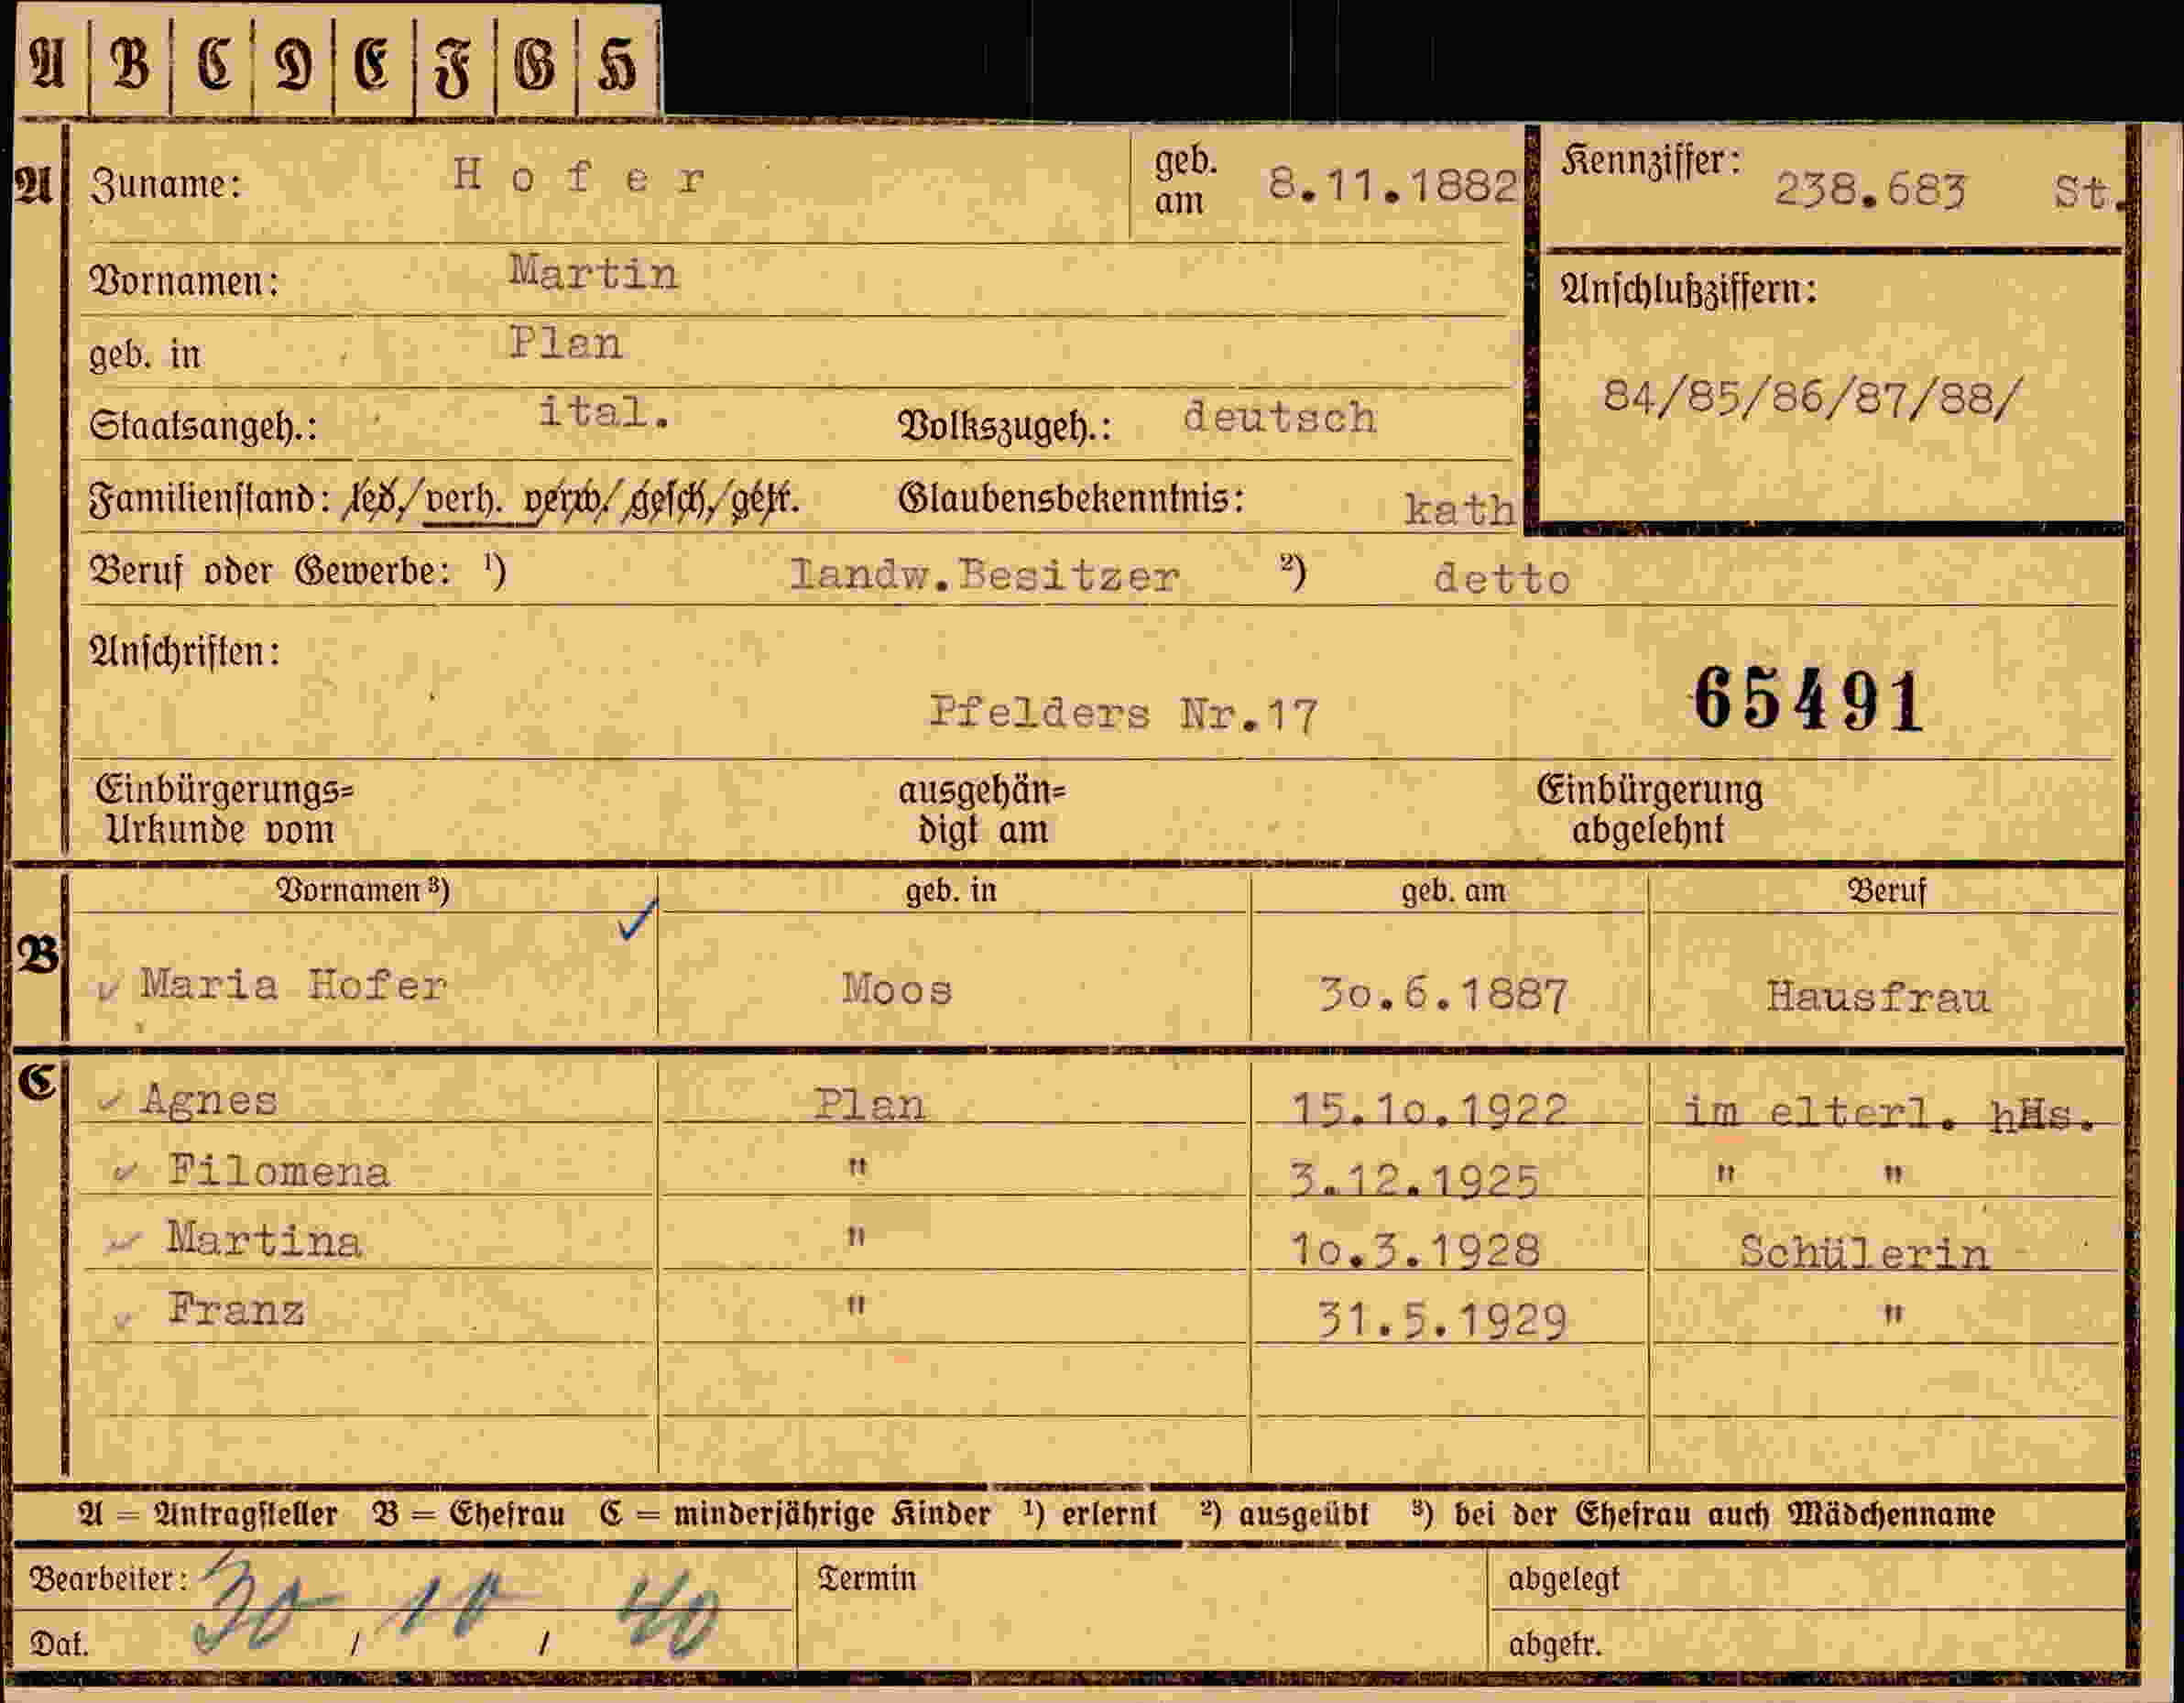 A B C D E F G H
A Zuname: Hofer geb. am 8.11.1882 Kennziffer: 238.683 St.
Vornamen: Martin
Anschlußziffern:
geb. in Plan
84/85/86/87/88/
Staatsangeh.: ital. Volkszugeh.: deutsch
Familienstand: led./verh. verw./gesch./getr. Glaubensbekenntnis: kath
Beruf oder Gewerbe: ¹) landw.Besitzer ²) detto
Anschriften:
Pfelders Nr.17 65491
Einbürgerungs= ausgehän= Einbürgerung
Urkunde vom digt am abgelehnt
Vornamen ³) geb. in geb. am Beruf
B ✓ Maria Hofer Moos 3o.6.1887 Hausfrau
C ✓ Agnes Plan 15.1o.1922 im elterl. hHs.
✓ Filomena " 3.12.1925 " "
✓ Martina " 1o.3.1928 Schülerin
✓ Franz " 31.5.1929 "
A = Antragsteller B = Ehefrau C = minderjährige Kinder ¹) erlernt ²) ausgeübt ³) bei der Ehefrau auch Mädchenname
Bearbeiter: Termin abgelegt
Dat. 30 / 10 / 40 abgetr.